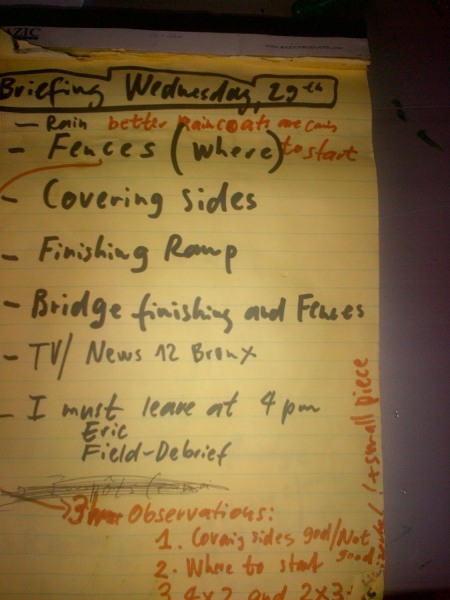 Briefing Wednesday, 29th
- Rain better Raincoats are
- Fences (where) to start
- Covering sides
- Finishing Ramp
- Bridge finishing and Fences
- TV/ News 12 Bronx
- I must leave at 4 pm
Eric
Field-Debrief
3 Observations:
1. Coverig sides good/Not good
2. Where to start
3 4x2 and 2x3:
! + small piece